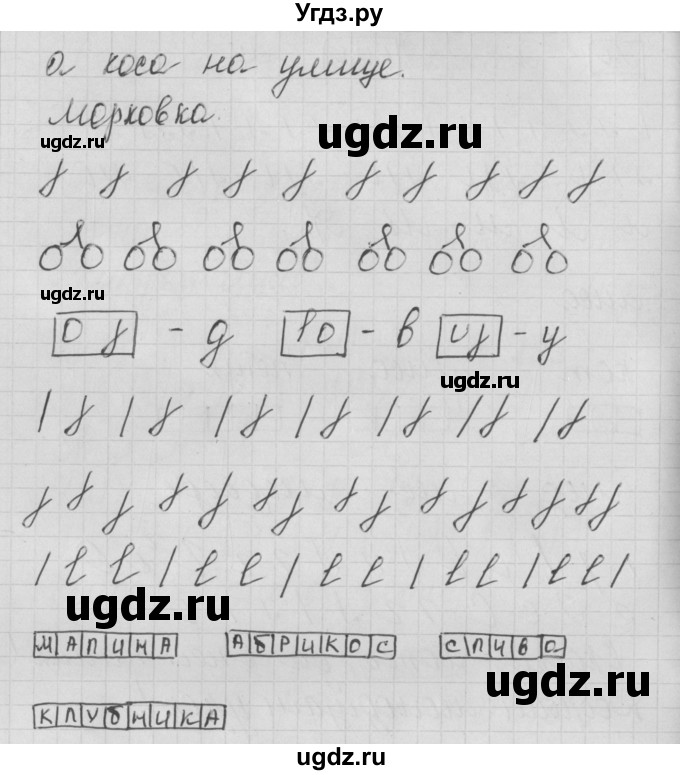 Угдз.ру
а коса на улице.
Морковка.
ugdz.ru ugdz.ru
ugdz.ru
д в у
ugdz.ru
ugdz.ru
ugdz.ru
МАЛИНА АБРИКОС СЛИВА
ugdz.ru
КЛУБНИКА
ugdz.ru